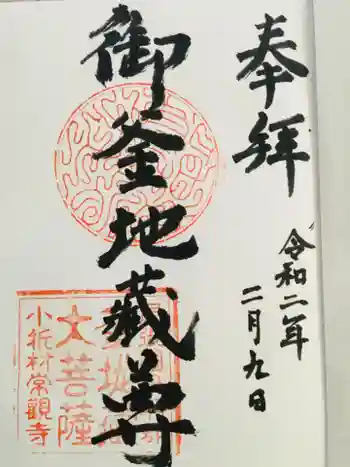 奉拝
令和二年
二月九日
御釜地蔵尊
大菩薩
小折村常觀寺